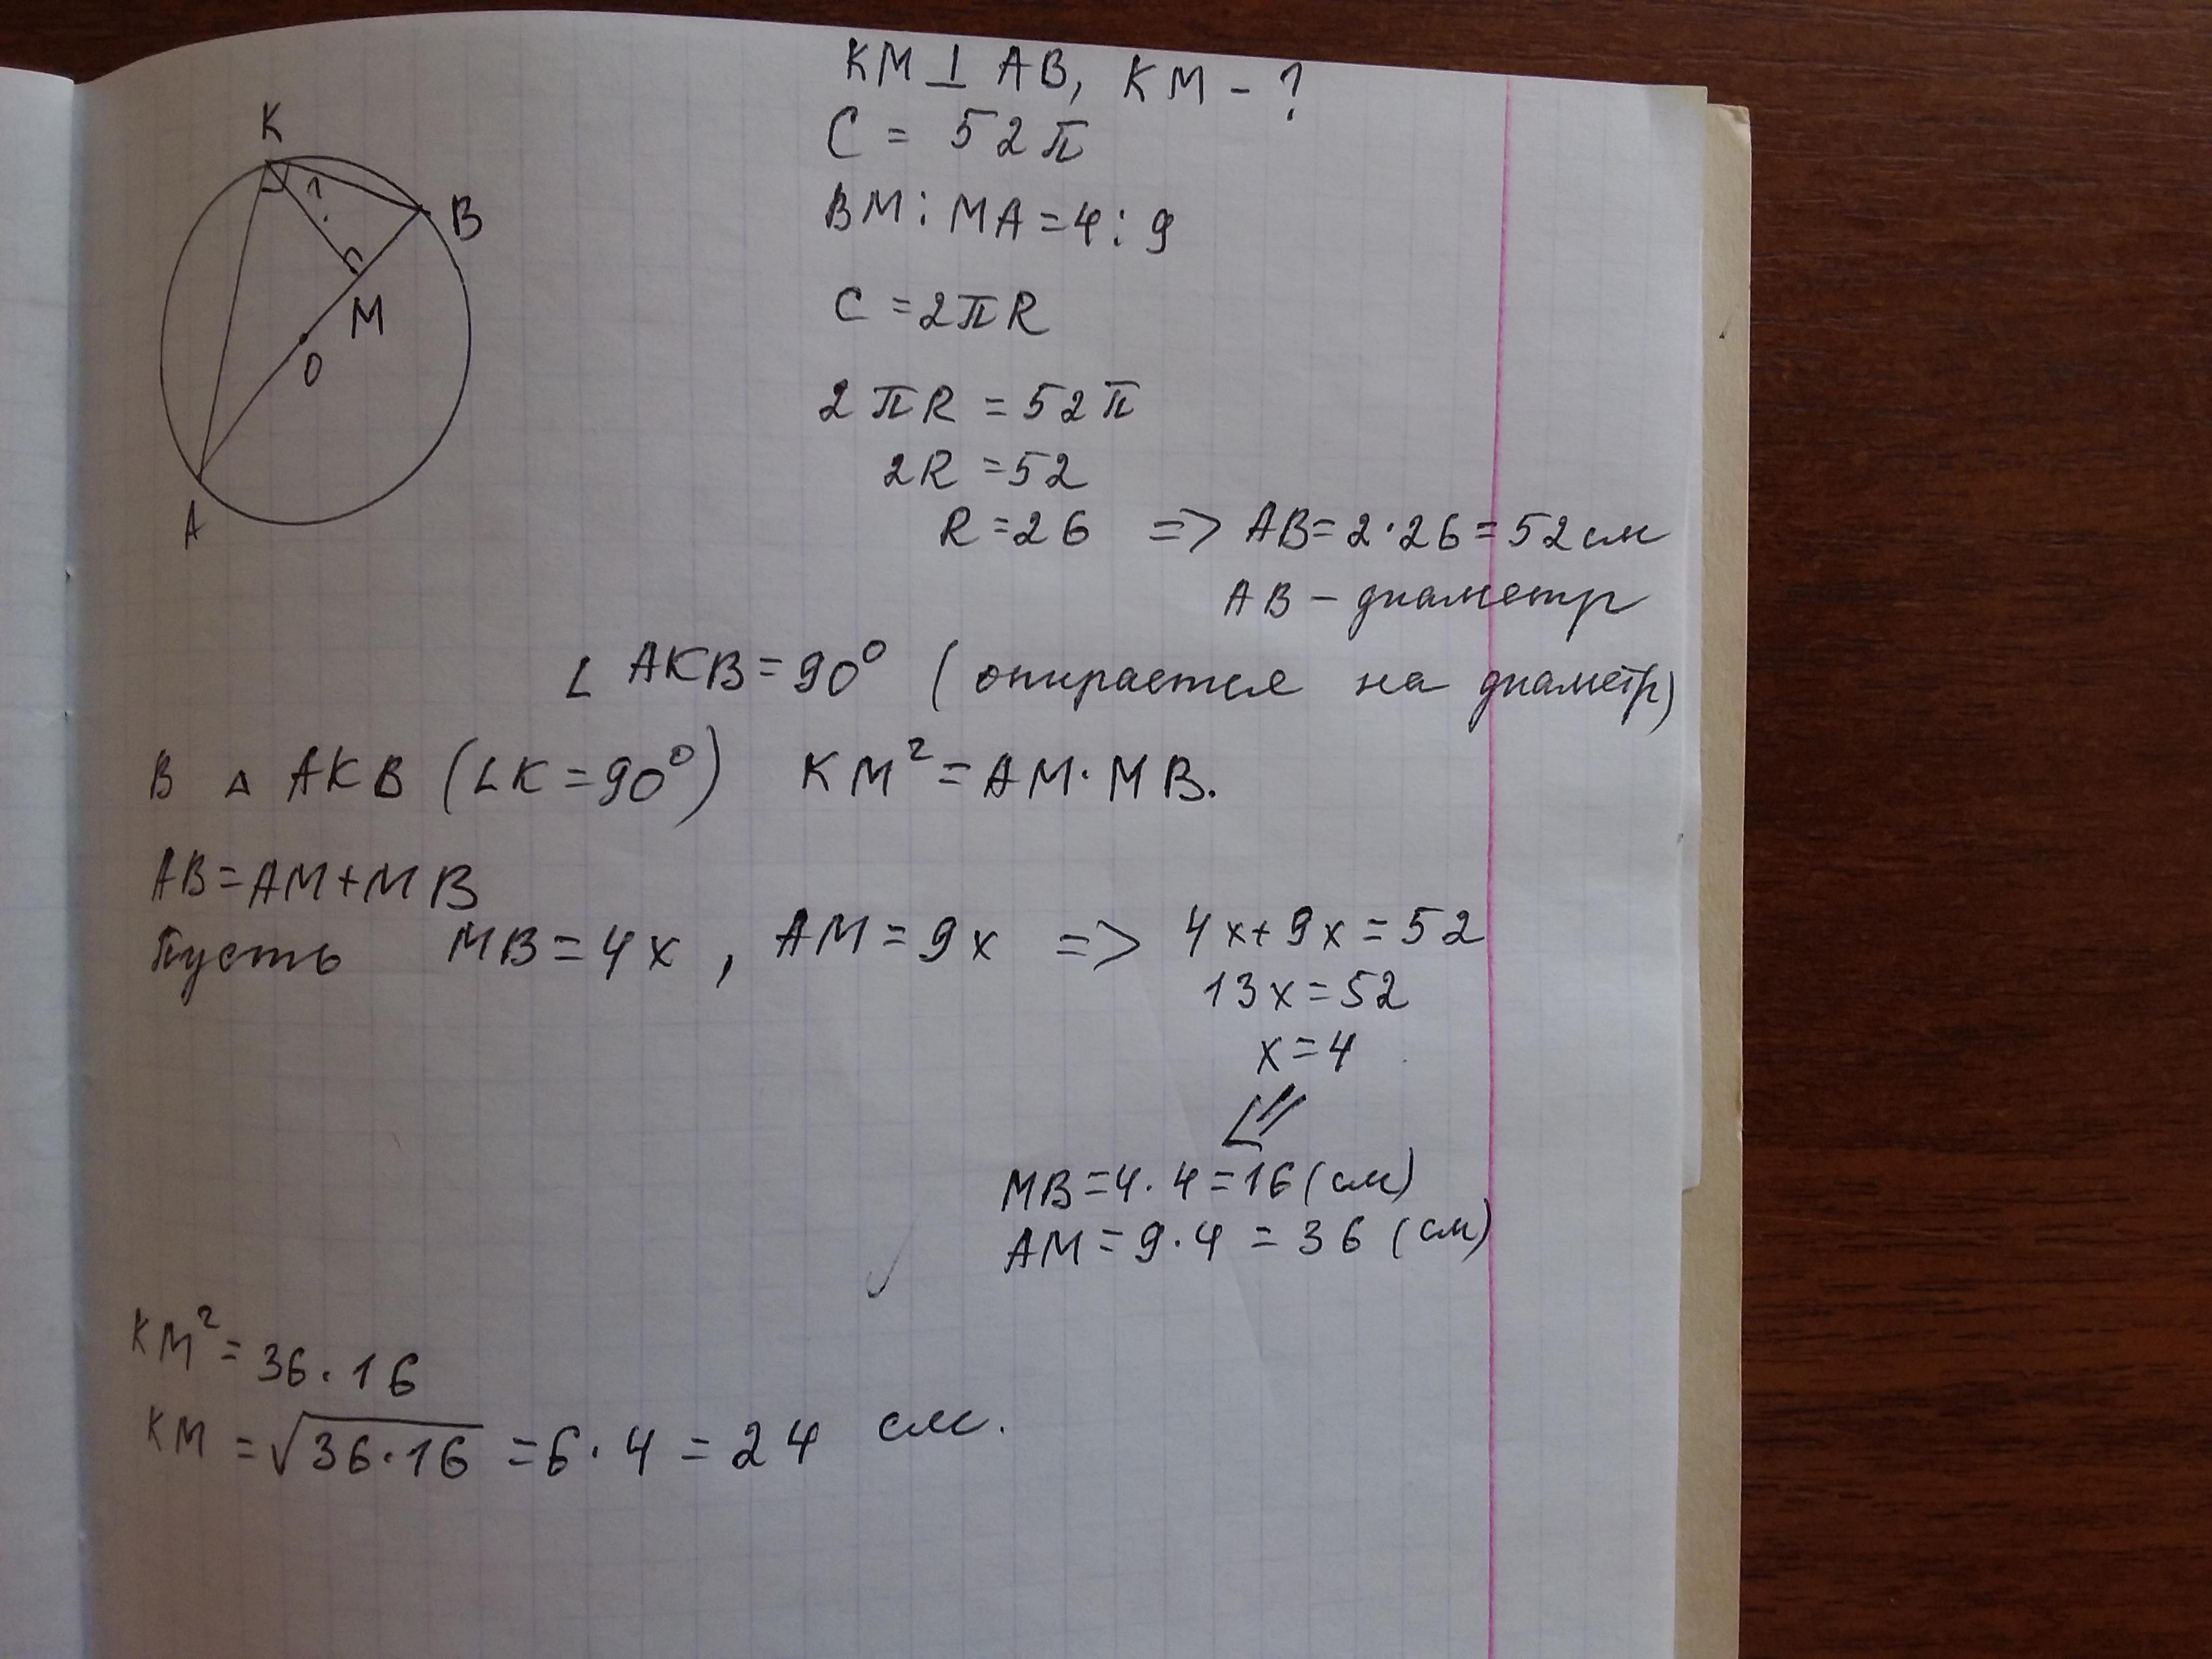 KM ⊥ AB, KM - ?
C = 52π
BM : MA = 4 : 9
K
?
B
M
O
A
C = 2πR
2πR = 52π
2R = 52
R = 26 => AB = 2·26 = 52 см
AB – диаметр
∠ AKB = 90° (опирается на диаметр)
В △ AKB (∠K = 90°) KM² = AM · MB.
AB = AM + MB
Пусть MB = 4x, AM = 9x => 4x + 9x = 52
13x = 52
x = 4
MB = 4·4 = 16 (см)
AM = 9·4 = 36 (см)
KM² = 36·16
KM = √36·16 = 6·4 = 24 см.